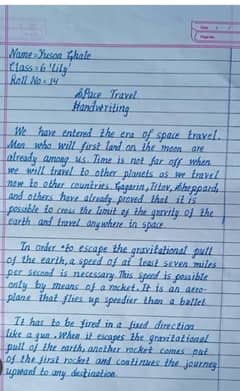 Name = Yuson Ghale
Class = 6 'Lily'
Roll No = 14
Space Travel
Handwriting
We have entered the era of space travel.
Men who will first land on the moon are
already among us. Time is not far off when
we will travel to other planets as we travel
now to other countries. Gagarin, Titov, Sheppard,
and others have already proved that it is
possible to cross the limit of the gravity of the
earth and travel anywhere in space.
In order to escape the gravitational pull
of the earth, a speed of at least seven miles
per second is necessary. This speed is possible
only by means of a rocket. It is an aero-
plane that flies up speedier than a bullet.
It has to be fired in a fixed direction
like a gun. When it escapes the gravitational
pull of the earth, another rocket comes out
of the first rocket and continues the journey
upward to any destination.